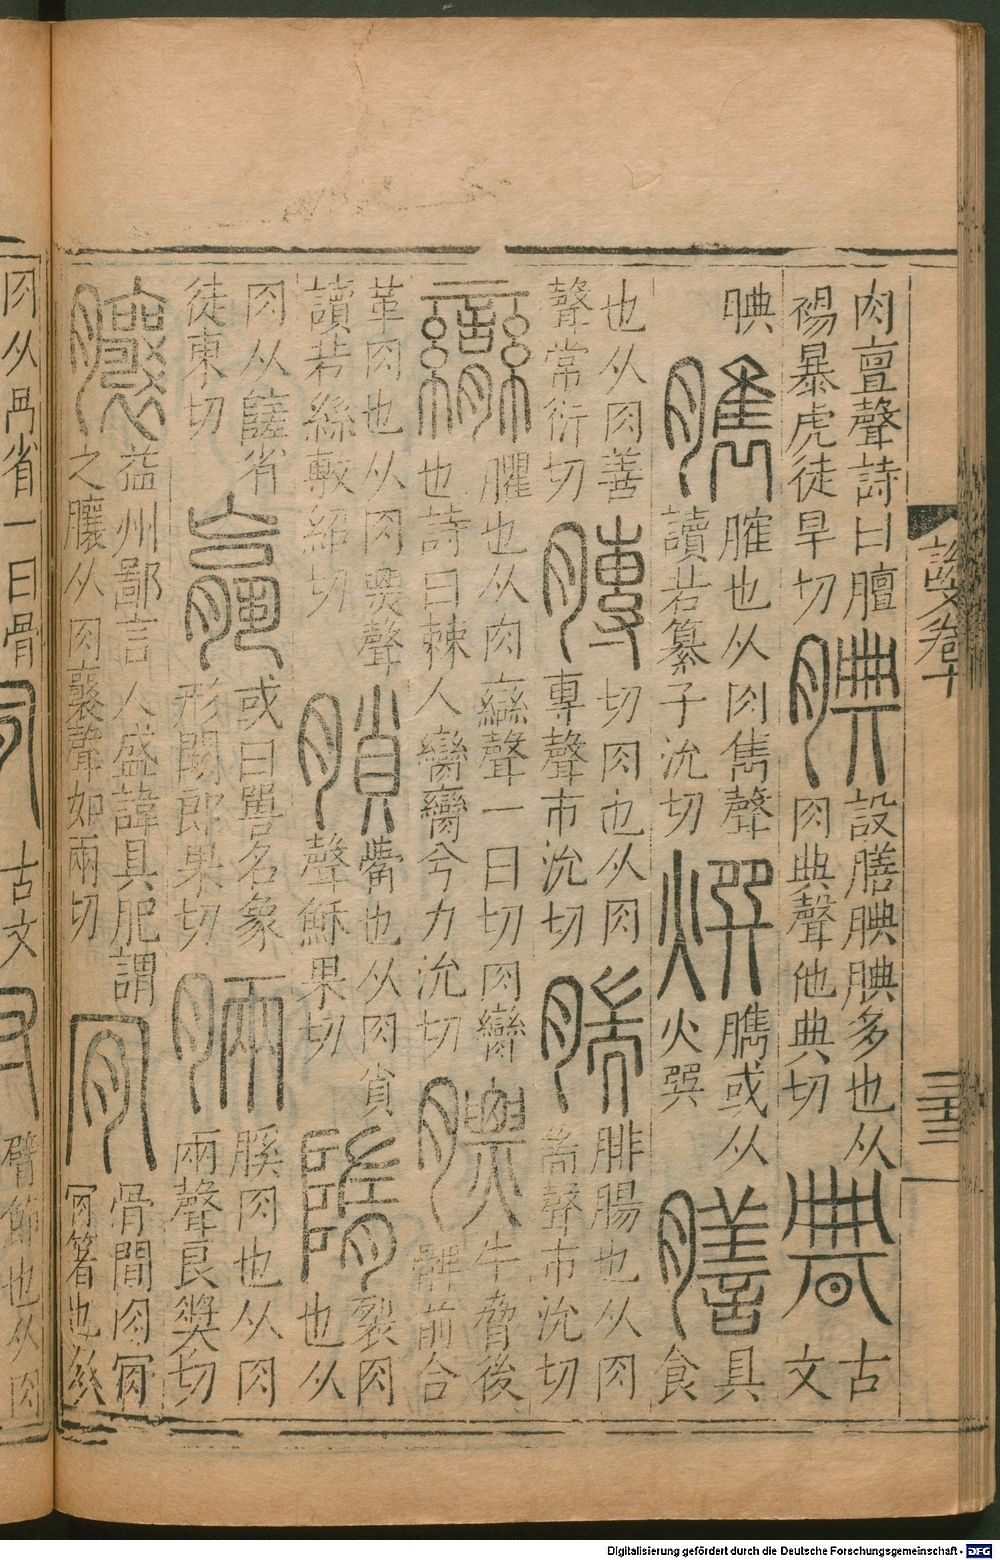 肉亶聲詩曰膻
裼暴虎徒旱切
設膳腆腆多也从
肉典聲他典切
古
文
腆
臇
臛也从肉雋聲
讀若纂子沇切
熼或从
火巽
膳
具
食
也从肉善
聲常衍切
膞
切肉也从肉
專聲市沇切
腓腸也从肉
耑聲市沇切
臠
臞也从肉䜌聲一曰切肉臠
也詩曰棘人臠臠兮力沇切
牛脅後
髀前合
革肉也从肉㶾聲
讀若絲敫紹切
䐝
觜也从肉𧴪
聲穌果切
裂肉
也从
肉从隓省
徒東切
或曰嘼名象
形闕郎果切
脼
膎肉也从肉
兩聲良奬切
益州鄙言人盛諱其肥謂
之䑋从肉襄聲如兩切
骨間肉肎
肎箸也从
說文卷十
三十三
肉从冎省一曰骨
古文
臂節也从肉
Digitalisierung gefördert durch die Deutsche Forschungsgemeinschaft - DFG